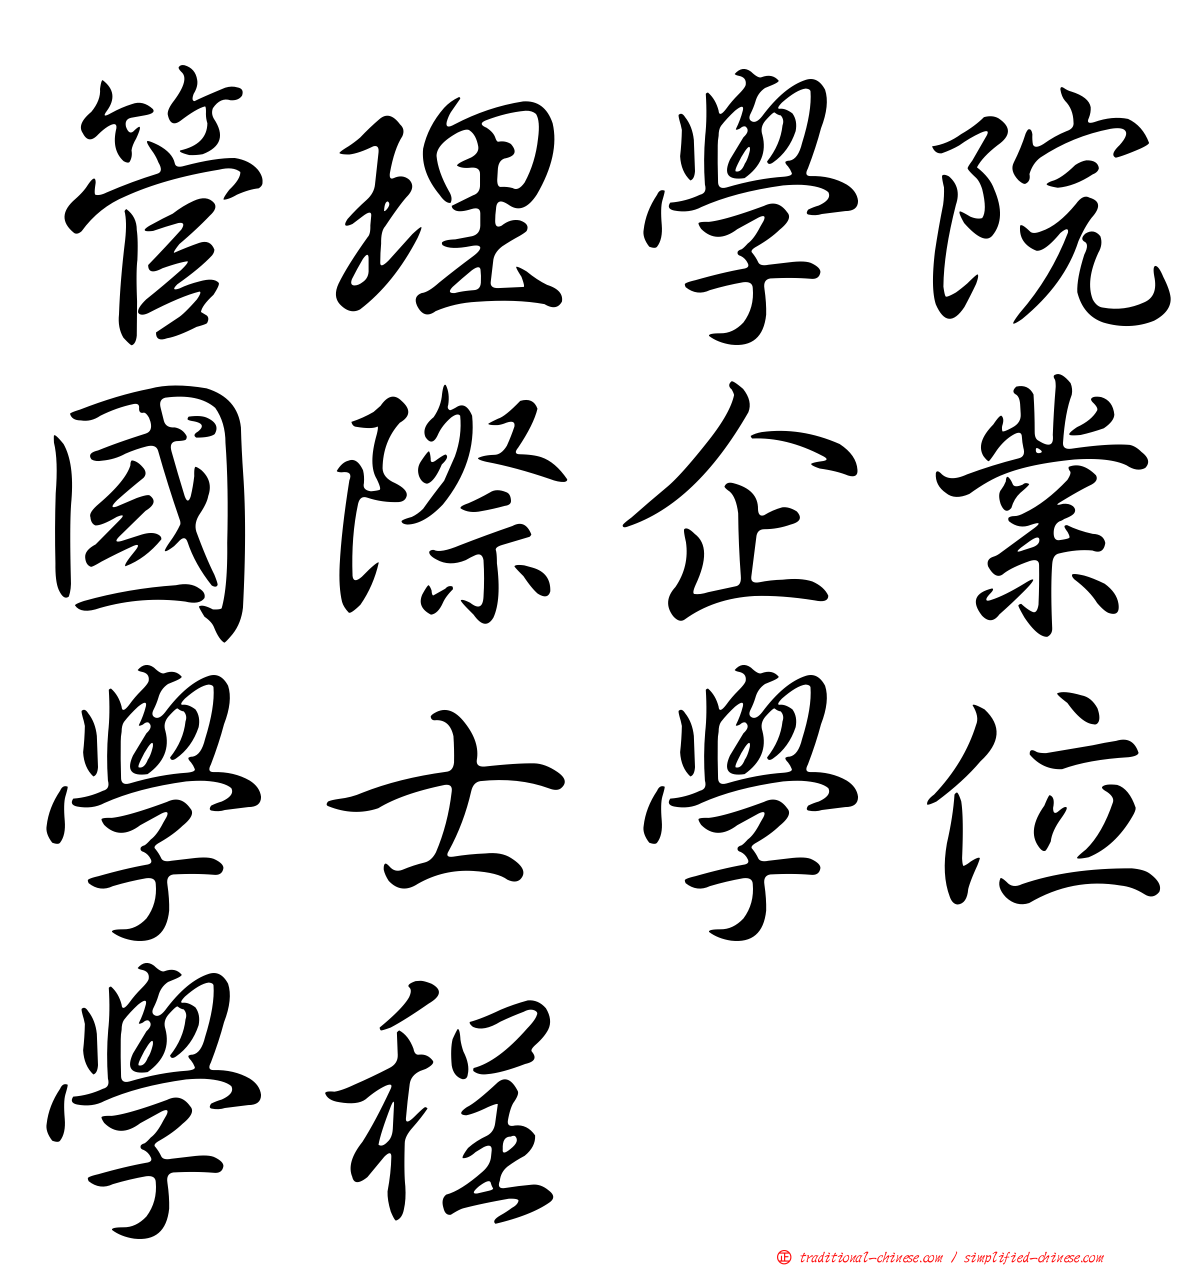 管理學院
國際企業
學士學位
學程
㊣ traditional-chinese.com / simplified-chinese.com